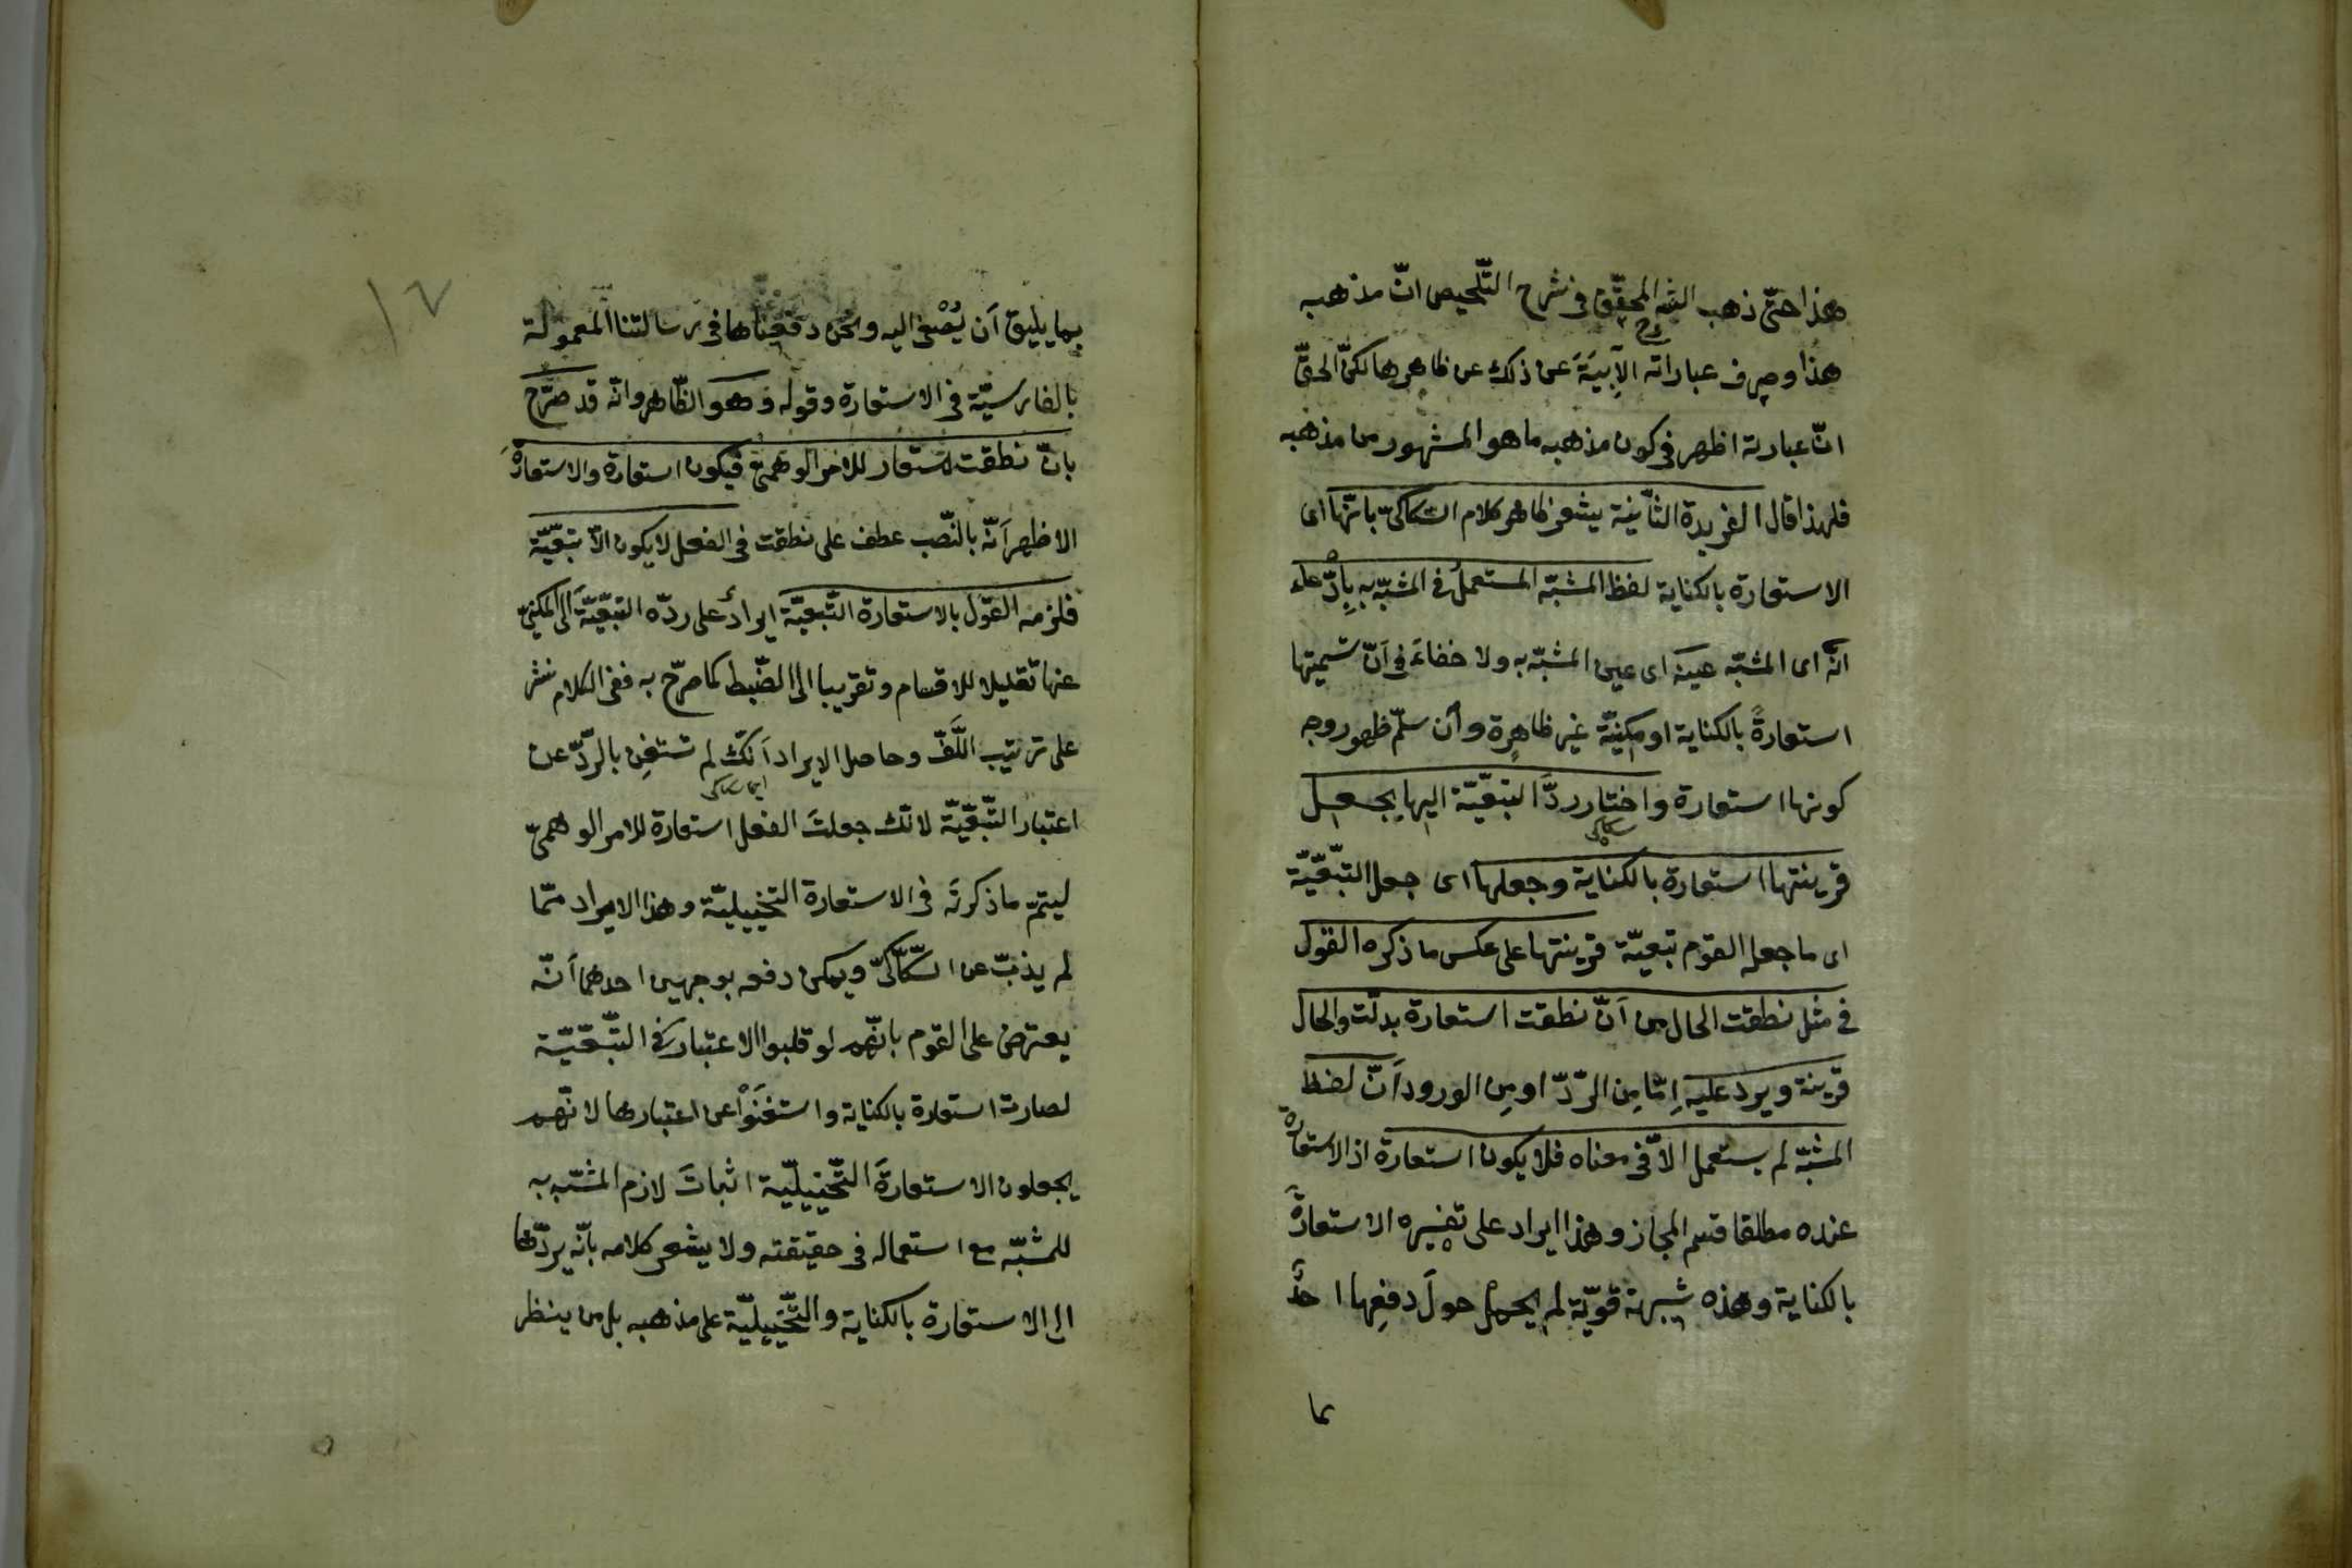 هذا حتّى ذهب الشه المحقّق فى شرح التّلخيص انّ مذهبه
هذا وصرف عباراته الآبِيَةَ عن ذلك عن ظاهرها لكنّ الحقّ
انّ عبارته اظهر فى كون مذهبه ما هو المشهور من مذهبه
فلهذا قال الفريدة الثّانية يشعر ظاهر كلام السّكاكىّ بانّها اى
الاستعارة بالكناية لفظ المشبّه المستعملُ فى المشبّه به بِادّعاء
انّه اى المشبّه عينه اى عين المشبّه به ولا خفاءَ فى اَنّ تسميتها
استعارةً بالكناية او مكنيّة غير ظاهرة وأن سلّم ظهور وجه
كونها استعارة واختار ردَّ التبعيّة اليها بجعل
سكاكى
قرينتها استعارة بالكناية وجعلها اى جعل التّبعيّة
اى ما جعله القوم تبعيّة قرينتها على عكس ما ذكره القوم
فى مثل نطقت الحال من اَنّ نطقت استعارة بدلّت والحال
قرينة ويرد عليه اِمّا مِن الرّدّ او مِن الورود اَنّ لفظ
المشبّه لم يستعمل الاّ فى معناه فلا يكون استعارة اذ الاستعارة
عنده مطلقا قسم المجاز وهذا ايراد على تفسيره الاستعارةَ
بالكناية وهذه شبهة قويّة لم يحمل حولَ دفعِها احدٌ
بما
بما يليق اَن يُصْغى اليه ونحن دفعناها فى رسالتنا المعمولة
بالفارسيّة فى الاستعارة وقوله وهو الظّاهر وانّه قد صرّح
بانّ نطقت مستعار للامر الوهمىّ فيكون استعارة والاستعارةُ
الاظهر اَنّه بالنّصب عطف على نطقت فى الفعل لا يكون الاّ تبعيّة
فلزمه القول بالاستعارة التّبعيّة ايرادٌ على ردّه التبعيّةَ الى المكنىّ
عنها تقليلا للاقسام وتقريبا الى الضّبط كما صرّح به ففى الكلام نشر
على ترتيب اللَّفّ وحاصل الايراد اَنّك لم تستغنِ بالرّدّ عن
ايها سكاكى
اعتبار التّبعيّة لانّك جعلتَ الفعل استعارة للامر الوهمىّ
ليتمّ ما ذكرتَه فى الاستعارة التخييليّة وهذا الايراد ممّا
لم يذبّ عن السّكّاكىّ ويمكن دفعه بوجهين احدهما اَنّه
يعترض على القوم بانّهم لو قلبوا الاعتبار فى التّبعيّة
لصارت استعارة بالكناية واستغنَوْا عن اعتبارها لانّهم
يجعلون الاستعارةَ التّخييليّة اثباتَ لازم المشبّه به
للمشبّه مع استعماله فى حقيقته ولا يشعر كلامه بانّه يردّها
الى الاستعارة بالكناية والتّخييليّة على مذهبه بل من ينظر
١٧